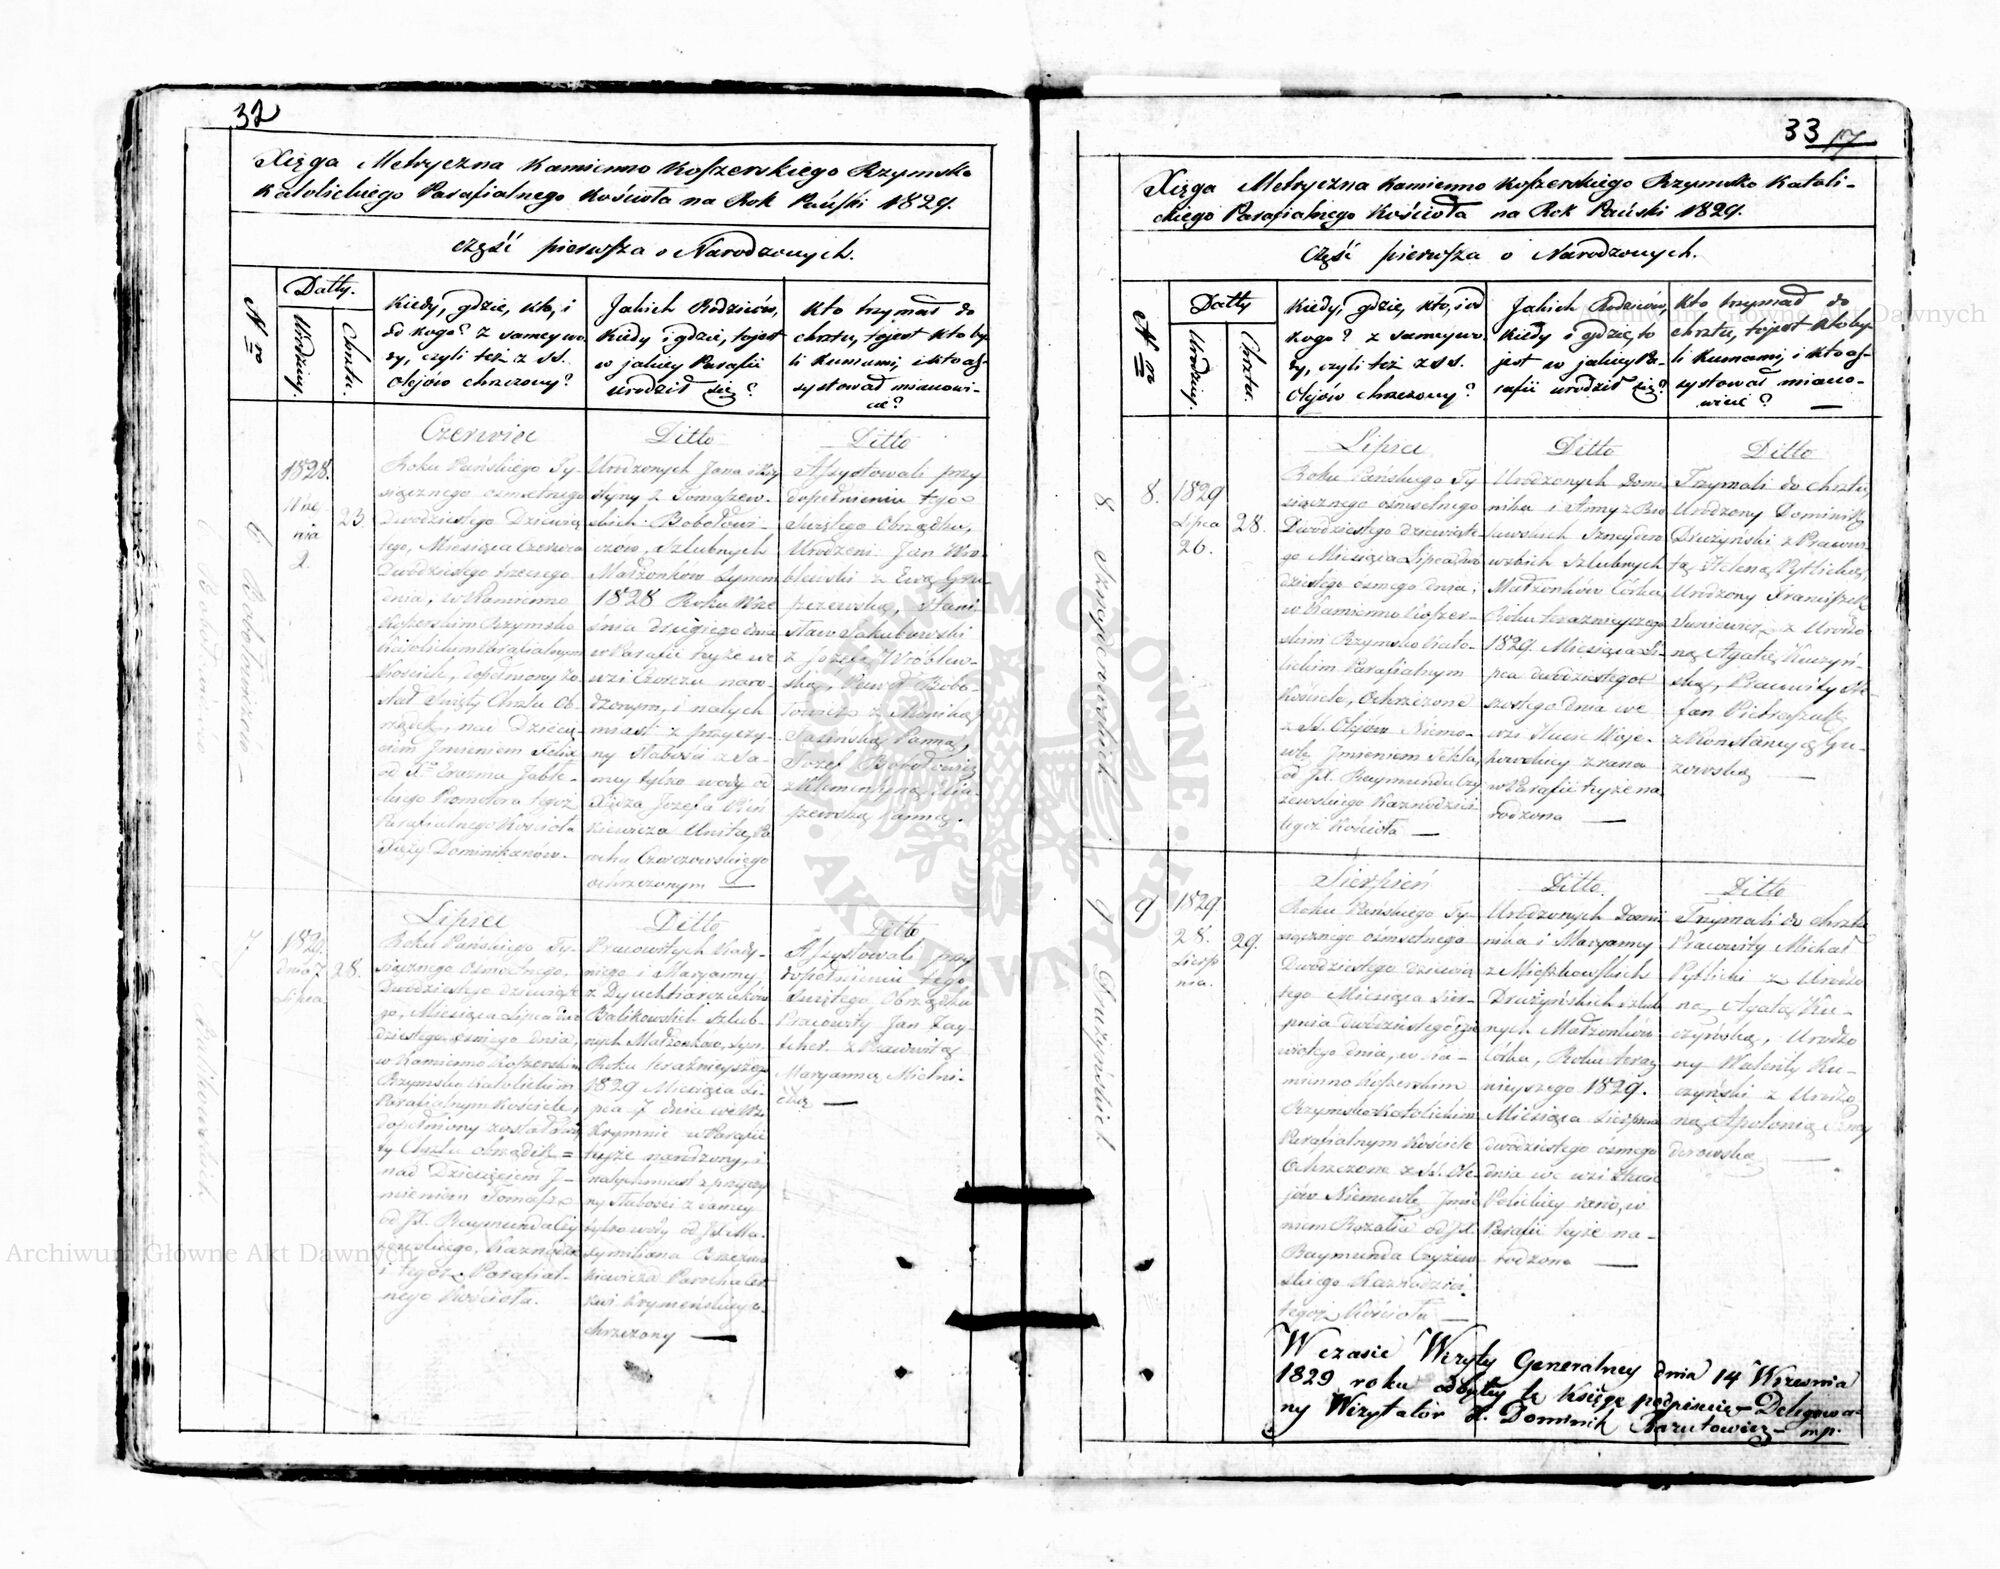 32
Xięga Metryczna Kamienno Koszerskiego Rzymsko
Katolickiego Parafialnego Kościoła na Rok Pański 1829.
Część pierwsza o Narodzonych.
Nro
Datty.
Urodziny.
Chrztu.
Kiedy, gdzie, kto, i
do kogo? z samey wo-
dy, czyli też z SS.
Olejów chrzczony?
Jakich Rodziców,
Kiedy i gdzie, tojest
w jakiey Parafii
urodził się?
Kto trzymał do
chrztu, tojest kto by-
li Kumami, i kto as-
systował mianowi-
cie?
6
1828.
Wrze-
nia
2.
23
Czerwiec
Roku Pańskiego Ty-
siącznego osmsetnego
Dwódziestego Dziewią
tego, Miesiąca Czerwca
Dwódziestego trzeciego
dnia, w Kamienno
Koszerskim Rzymsko
Katolickim Parafialnym
Kościele, dopełniony zo-
stał Święty Chrztu Ob-
rządek, nad Dziecię-
ciem Imieniem Felix
od X. Erazma Jabł-
skiego Promotora tegoż
Parafialnego Kościoła
Xięży Dominikanów.
Ditto
Urodzonych Jana i Kry
styny z Tomaszew-
skich Bobotowi-
czow, Szlubnych
Małżonków Synem
1828 Roku Wrze
śnia drugiego dnia
w Parafii teyże we
wsi Czerczu naro-
dzonym, i natych
miast z przyczy-
ny słabości z Sa-
mey tylko wody od
Xiędza Józefa
Unita, Pa
rocha Czerczowskiego
ochrzczonym —
Ditto
Assystowali przy
dopełnieniu tego
Świętego Obrządku,
Urodzeni Jan Wró-
blewski z Ewą
Stani-
sław Jakubowski
z Józefą Wróblew-
ską, Paweł Bobo-
towicz z Moniką
Panną,
Józef Bobotowicz
z Klementyną
Panną.
7
Balikowskich
dnia 7
Lipca
28.
Lipiec
Roku Pańskiego Ty-
siącznego Osmsetnego,
Dwódziestego dziewiąte
go, Miesiąca Lipca dwó
dziestego osmego dnia,
w Kamienno Koszerskim
Rzymsko Katolickim
Parafialnym Kościele,
dopełniony został Świę
ty Chrztu obrządek =
nad Dziecięciem I-
mieniem Tomasz
od JX. Raymunda Czy
żewskiego, Kaznodzie
i tegoż Parafial-
nego Kościoła.
Ditto
Pracowitych
i Maryanny,
Balikowskich Szlub-
nych Małżonków, Syn
Roku teraźnieyszego
1829 Miesiąca Li-
pca 7 dnia we wsi
Krymnie w Parafii
teyże narodzony, i
natychmiast z przyczy
ny słabości z samey
tylko wody od JX. Ma-
xymiliana
Parocha Cer
kwi Krymeńskiey o-
chrzczony —
Ditto
Assystowali przy
dopełnieniu tego
Świętego Obrządku
Pracowity Jan Zay-
z Pracowitą
Maryanną Mielni-
—
33 17
Xięga Metryczna Kamienno Koszerskiego Rzymsko Katoli-
ckiego Parafialnego Kościoła na Rok Pański 1829.
Część pierwsza o Narodzonych.
Nro
Datty
Urodziny.
Chrztu.
Kiedy, gdzie, kto, i od
kogo? z samey wo-
dy, czyli też z SS.
Olejów chrzczony?
Jakich Rodziców,
Kiedy i gdzie, to
jest w jakiey Pa-
rafii urodził się?
Kto trzymał do
chrztu, tojest kto by-
li kumami, i kto as-
systował miano-
wicie? —
8
Sznayderowskich
8.
1829
Lipca
26.
28.
Lipiec
Roku Pańskiego Ty-
siącznego ośmsetnego
Dwódziestego dziewiąte-
go Miesiąca Lipca dwó
dziestego osmego dnia,
w Kamienno Koszer-
skim Rzymsko Kato-
lickim Parafialnym
Kościele, Ochrzczone
z SS. Olejów Niemo-
wle Imieniem Tekla,
od JX. Raymunda Czy
żewskiego Kaznodziei
tegoż Kościoła —
Ditto
Urodzonych Domi-
nika i Anny z
Sznayder
owskich Szlubnych
Małżonków Córka
Roku teraznieyszego
1829 Miesiąca Li-
pca dwódziestego
szóstego dnia we
wsi Hucie
z rana
w Parafii teyże na
rodzona —
Ditto
Trzymali do chrztu,
Urodzony Dominik
Drużyński z Pracowi-
tą Heleną Pytlicką,
Urodzony Franciszek
z Urodzo
ną Agatą Kuczyń-
ską, Pracowity Ste-
fan Pietraszuk
z Konstancyą Gu-
zowską —
9
Drużyńskich
9
1829
28.
Sierp
nia.
29.
Sierpień
Roku Pańskiego Ty-
siącznego ośmsetnego
Dwódziestego dziewią
tego Miesiąca Sier-
pnia dwódziestego dzie
wiątego dnia, w Ka-
mienno Koszerskim
Rzymsko-Katolickim
Parafialnym Kościele
Ochrzczone z SS. Ole-
jów Niemowle Imie
niem Rozalia od JX.
Raymunda Czyżew-
skiego Kaznodziei
tegoż Kościoła —
Ditto
Urodzonych Domi-
nika i Maryanny
z Mioszkowskich
Drużyńskich szlub
nych Małżonków
Córka, Roku teraz
nieyszego 1829.
Miesiąca Sierpnia
dwódziestego ósmego
dnia we wsi Hucie
rano, w
Parafii teyże na-
rodzona —
Ditto
Trzymali do chrztu
Pracowity Michał
Pytlicki z Urodzo
ną Agatą Ku-
czyńską, Urodzo
ny Walenty Ku-
czyński z Urodzo
ną Apolonią Sznay
derowską —
W czasie Wizyty Generalney dnia 14 Wrzesnia
1829 roku odbytey tę Księgę podpisuie Delegowa-
ny Wizytator X. Dominik Narutowicz mp.
Archiwum Główne Akt Dawnych
Archiwum Główne Akt Dawnych
ARCHIWUM GŁÓWNE AKT DAWNYCH